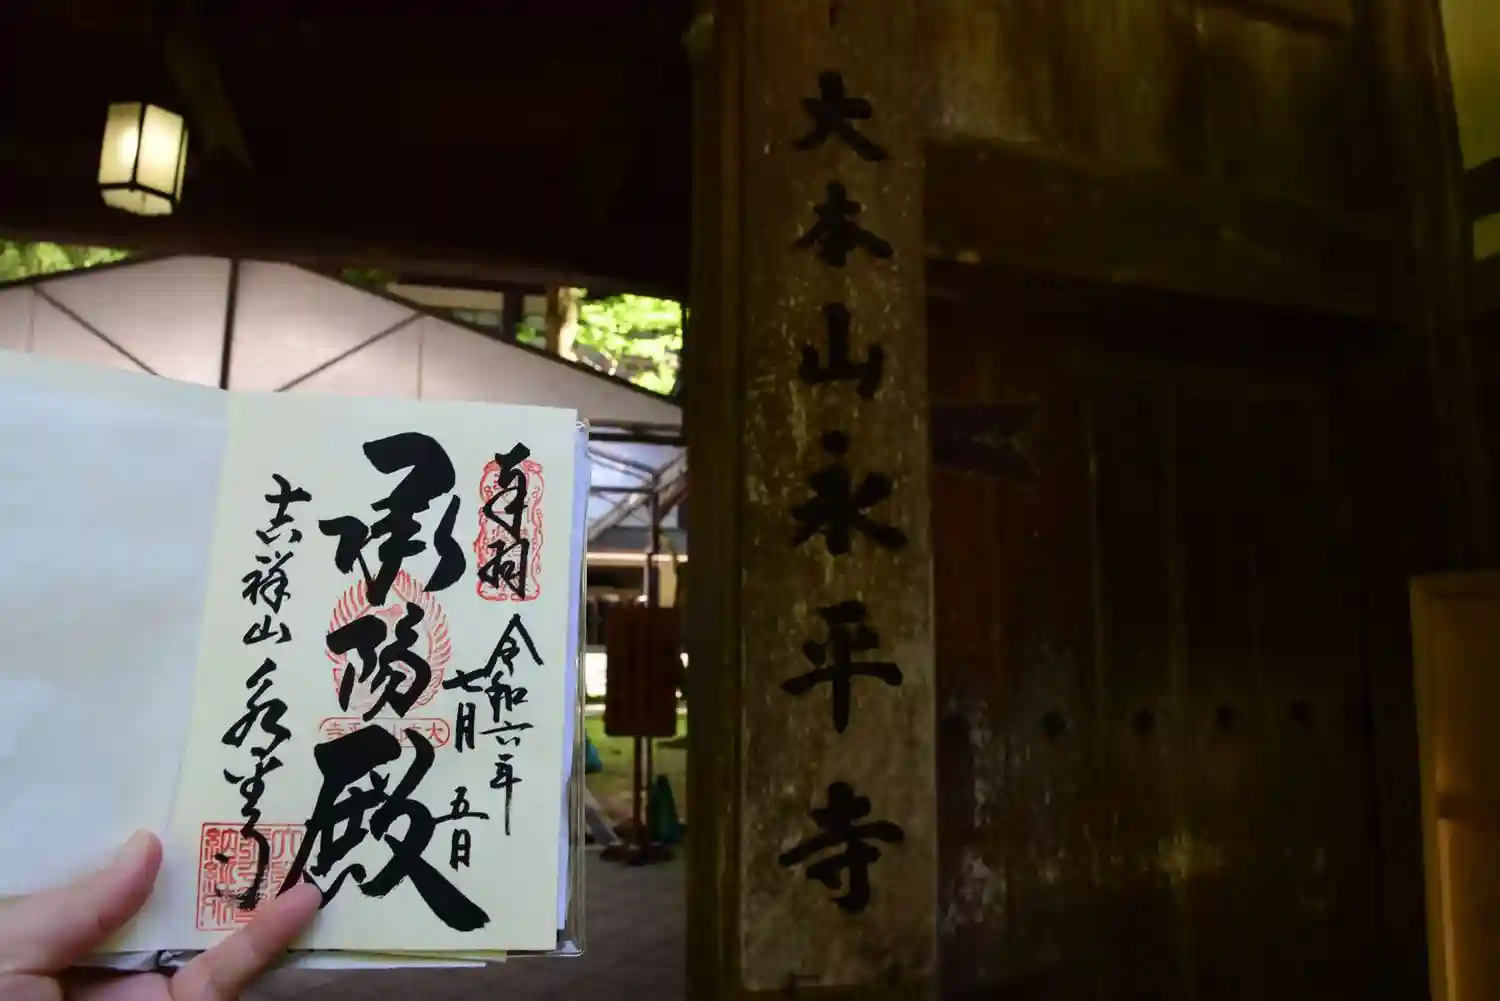 大本山永平寺
奉拝
令和六年
七月五日
承陽殿
吉祥山永平寺